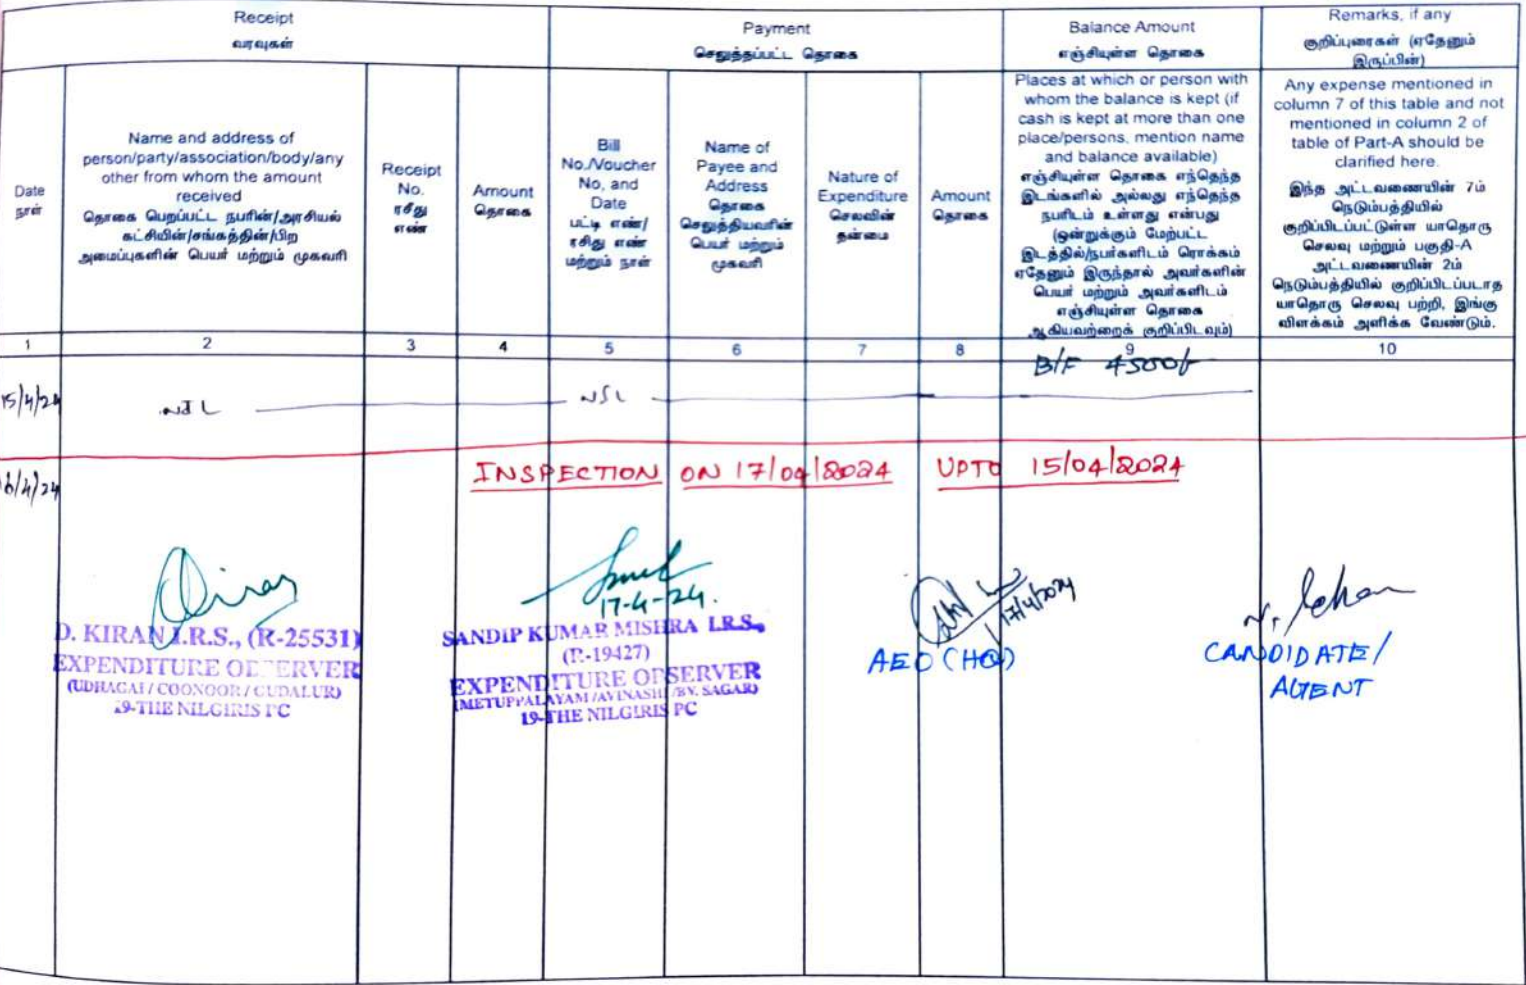 Receipt
வரவுகள்
Payment
செலுத்தப்பட்ட தொகை
Balance Amount
எஞ்சியுள்ள தொகை
Remarks, if any
குறிப்புரைகள் (ஏதேனும்
இருப்பின்)
Date
நாள்
Name and address of
person/party/association/body/any
other from whom the amount
received
தொகை பெறப்பட்ட நபரின்/அரசியல்
கட்சியின்/சங்கத்தின்/பிற
அமைப்புகளின் பெயர் மற்றும் முகவரி
Receipt
No.
ரசீது
எண்
Amount
தொகை
Bill
No./Voucher
No, and
Date
பட்டி எண்/
ரசிது எண்
மற்றும் நாள்
Name of
Payee and
Address
தொகை
செலுத்தியவரின்
பெயர் மற்றும்
முகவரி
Nature of
Expenditure
செலவின்
தன்மை
Amount
தொகை
Places at which or person with
whom the balance is kept (if
cash is kept at more than one
place/persons, mention name
and balance available)
எஞ்சியுள்ள தொகை எந்தெந்த
இடங்களில் அல்லது எந்தெந்த
நபரிடம் உள்ளது என்பது
(ஒன்றுக்கும் மேற்பட்ட
இடத்தில்/நபர்களிடம் ரொக்கம்
ஏதேனும் இருந்தால் அவர்களின்
பெயர் மற்றும் அவர்களிடம்
எஞ்சியுள்ள தொகை
ஆகியவற்றைக் குறிப்பிடவும்)
Any expense mentioned in
column 7 of this table and not
mentioned in column 2 of
table of Part-A should be
clarified here.
இந்த அட்டவணையின் 7ம்
நெடும்பத்தியில்
குறிப்பிடப்பட்டுள்ள யாதொரு
செலவு மற்றும் பகுதி-A
அட்டவணையின் 2ம்
நெடும்பத்தியில் குறிப்பிடப்படாத
யாதொரு செலவு பற்றி, இங்கு
விளக்கம் அளிக்க வேண்டும்.
1 2 3 4 5 6 7 8 9 10
B/F 4500/-
15/4/24 NIL NIL
16/4/24
INSPECTION ON 17/04/2024 UPTO 15/04/2024
17-4-24.
17/4/2024
D. KIRAN I.R.S., (R-25531)
EXPENDITURE OBSERVER
(UDHAGAI / COONOOR / GUDALUR)
19-THE NILGIRIS PC
SANDIP KUMAR MISHRA I.R.S.,
(R-19427)
EXPENDITURE OBSERVER
(METUPPALAYAM /AVINASHI /BV. SAGAR)
19-THE NILGIRIS PC
AEO (HQ)
CANDIDATE/
AGENT